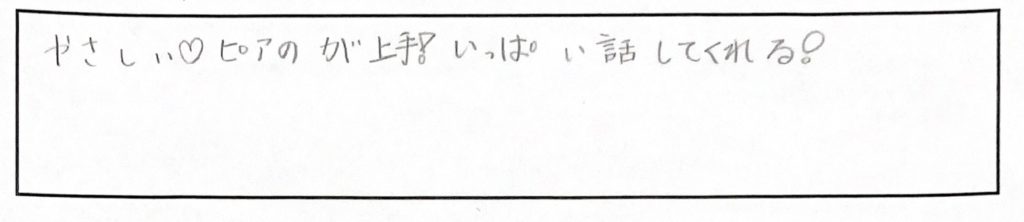 やさしい♡ピアのが上手!いっぱい話してくれる!